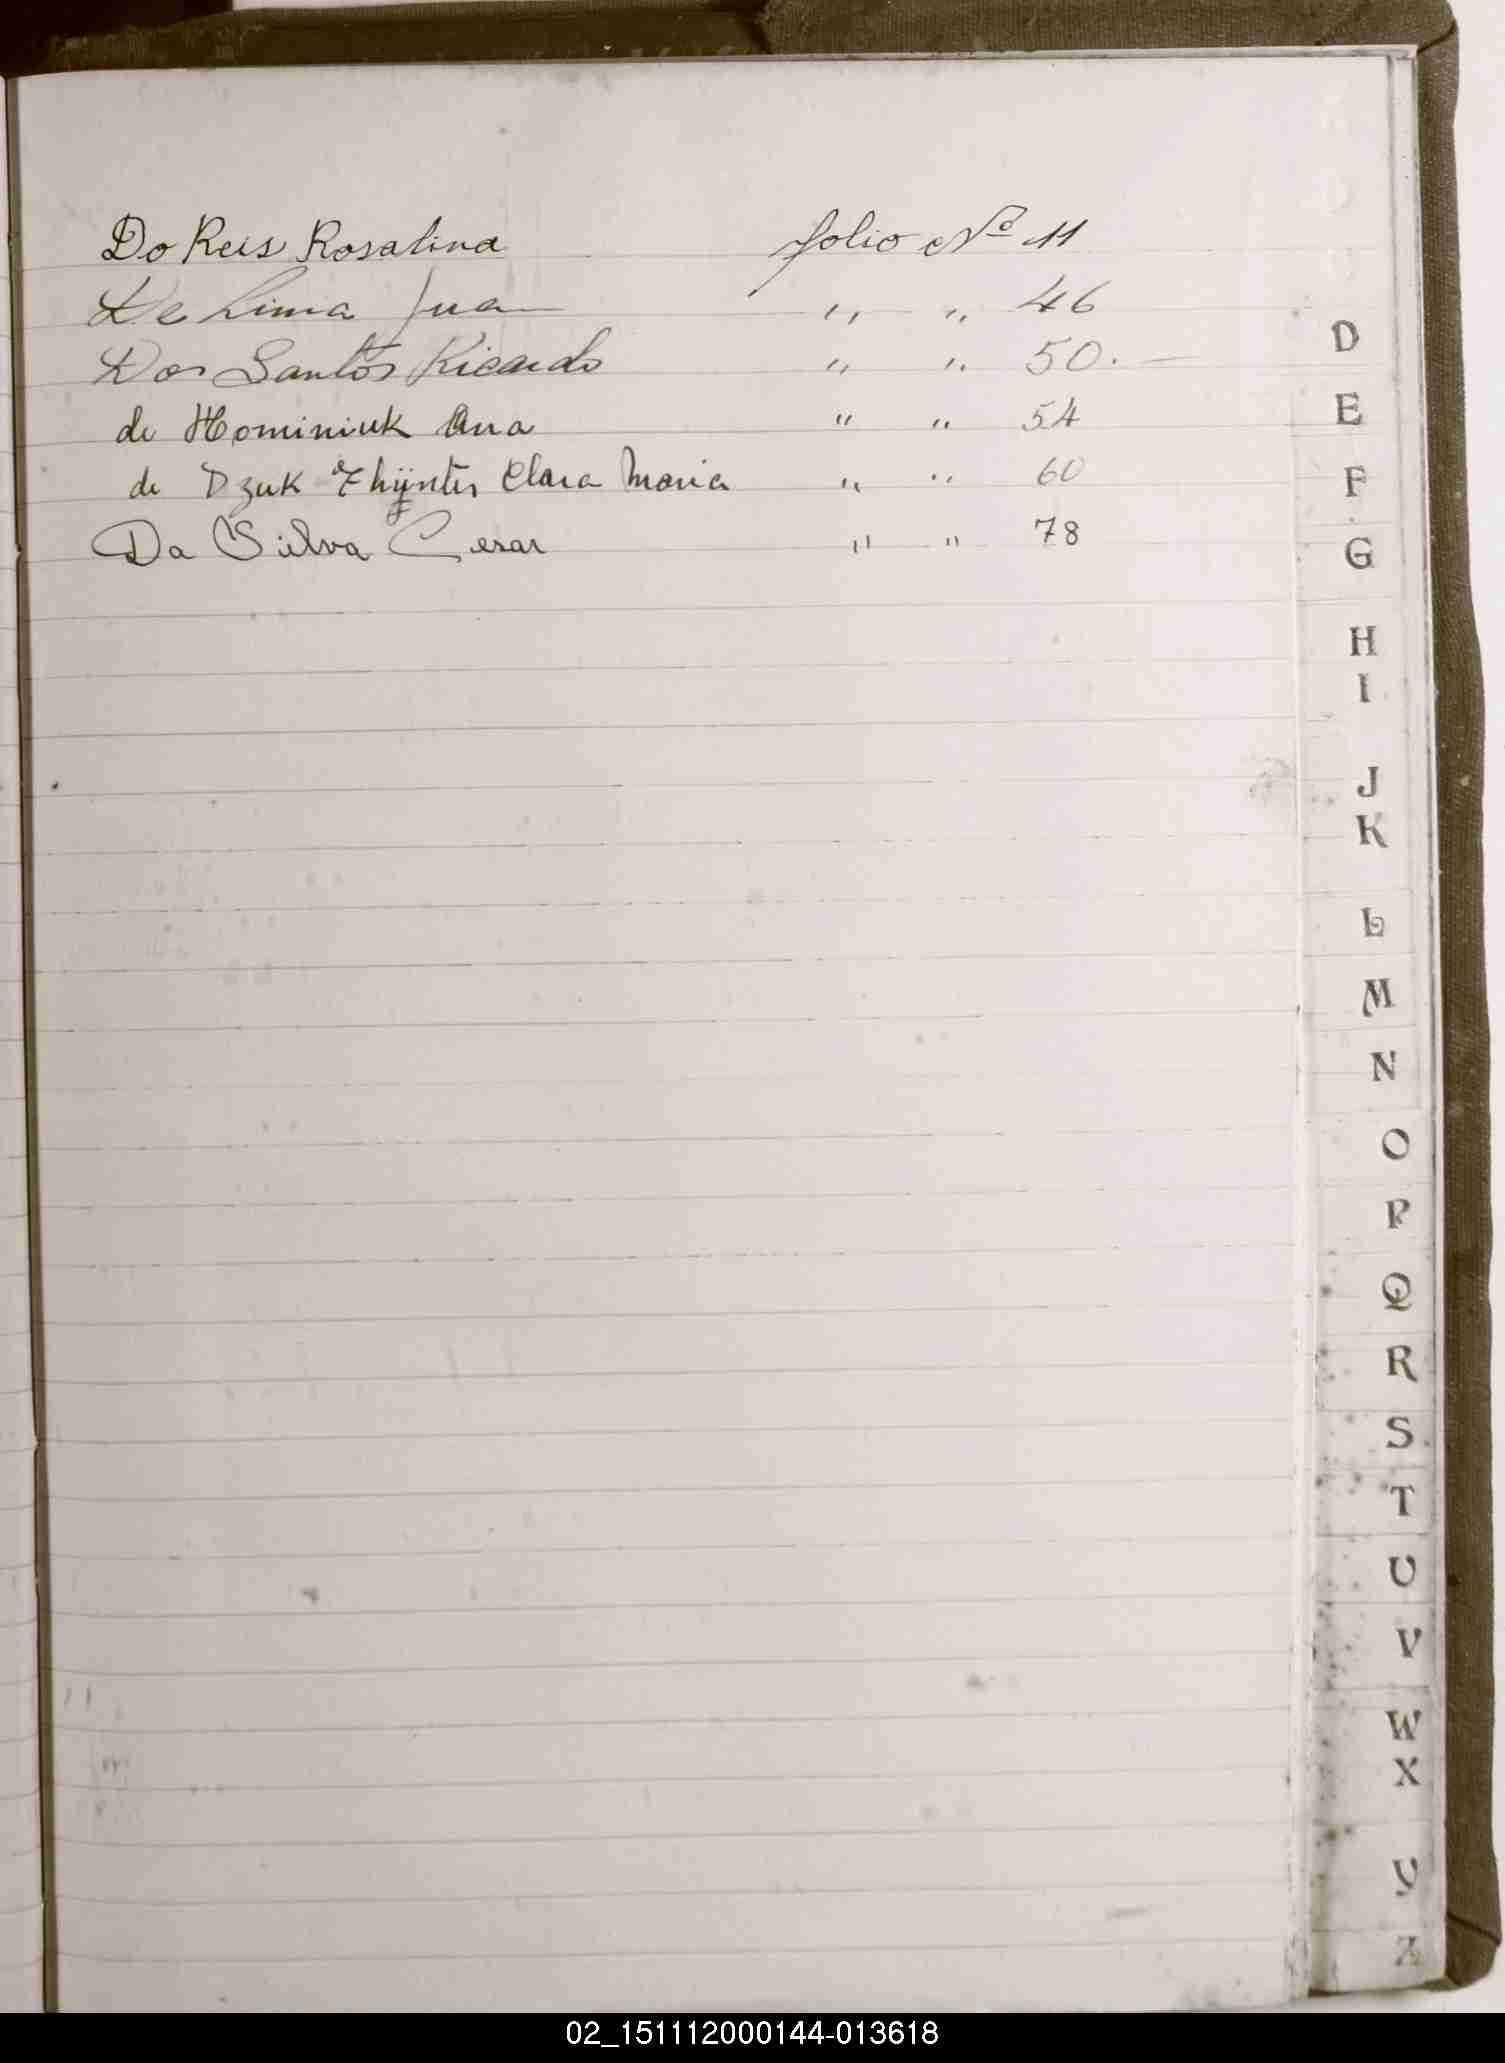 Do Reis Rosalina folio Nº 11
De Lima Juan " " 46
Dos Santos Ricardo " " 50.—
de Hominiuk Ana " " 54
de Dzuk Clara Maria " " 60
Da Silva Cesar " " 78
D
E
F
G
H
I
J
K
L
M
N
O
P
Q
R
S
T
U
V
W
X
Y
Z
02_151112000144-013618